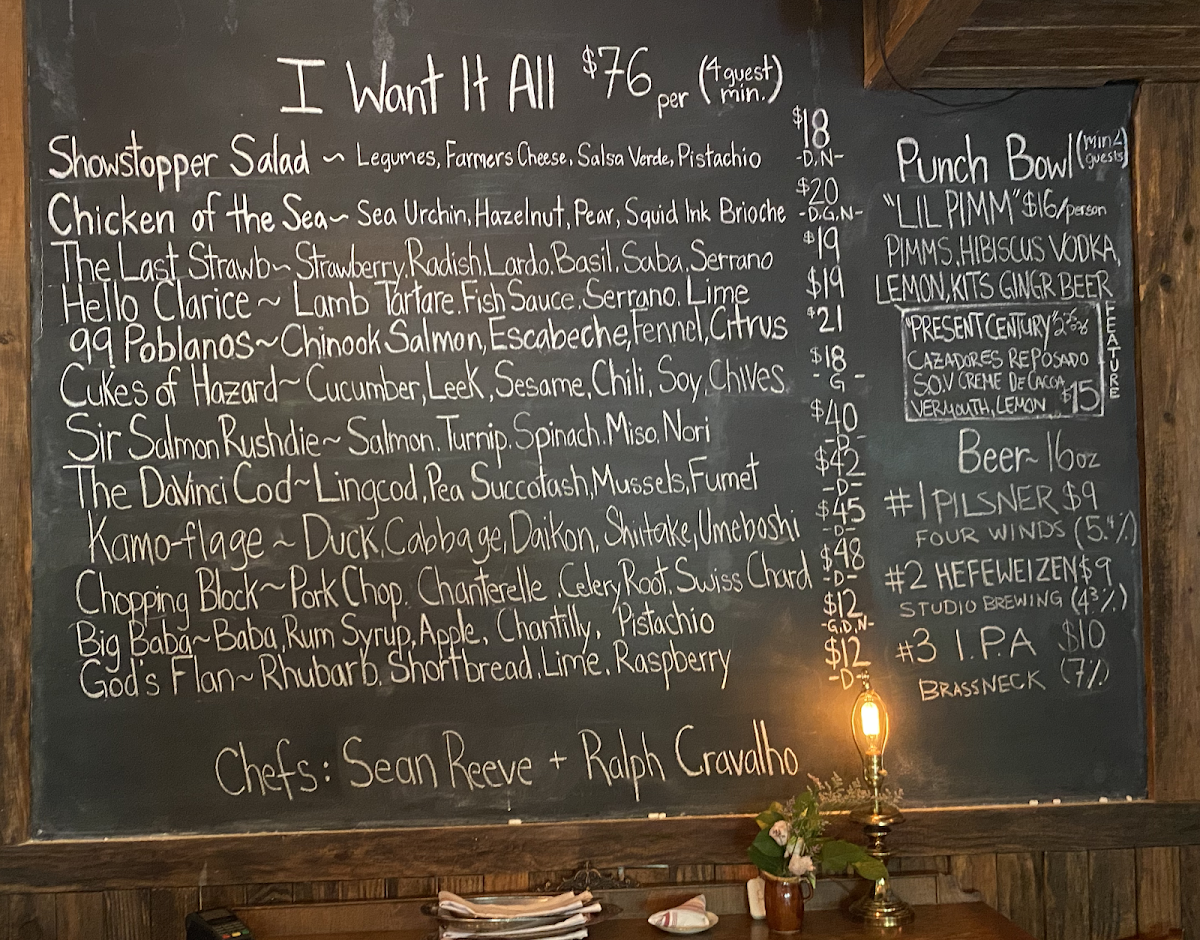 I Want It All $76 per (4 guest min.)
Showstopper Salad ~ Legumes, Farmers Cheese, Salsa Verde, Pistachio $18
-D,N-
Chicken of the Sea~ Sea Urchin, Hazelnut, Pear, Squid Ink Brioche $20
-D,G,N-
The Last Strawb~ Strawberry, Radish, Lardo, Basil, Saba, Serrano $19
Hello Clarice ~ Lamb Tartare, Fish Sauce, Serrano, Lime $19
99 Poblanos~ Chinook Salmon, Escabeche, Fennel, Citrus $21
Cukes of Hazard~ Cucumber, Leek, Sesame, Chili, Soy, Chives $18
- G -
Sir Salmon Rushdie~ Salmon, Turnip, Spinach, Miso, Nori $40
-D-
The DaVinci Cod~ Lingcod, Pea Succotash, Mussels, Fumet $42
-D-
Kamo-flage ~ Duck, Cabbage, Daikon, Shiitake, Umeboshi $45
-D-
Chopping Block~ Pork Chop, Chanterelle, Celery Root, Swiss Chard $48
-D-
Big Baba~ Baba, Rum Syrup, Apple, Chantilly, Pistachio $12
-G,D,N-
God's Flan~ Rhubarb, Shortbread, Lime, Raspberry $12
-D-
Chefs: Sean Reeve + Ralph Cravalho
Punch Bowl (min 2 guests)
"LIL PIMM" $16/person
PIMMS, HIBISCUS VODKA,
LEMON, KITS GINGR BEER
"PRESENT CENTURY"
CAZADORES REPOSADO
SO.V CREME DE CACOA,
VERMOUTH, LEMON $15
FEATURE
Beer~ 16oz
#1 PILSNER $9
FOUR WINDS (5.4%)
#2 HEFEWEIZEN $9
STUDIO BREWING (4.3%)
#3 I.P.A $10
BRASSNECK (7%)